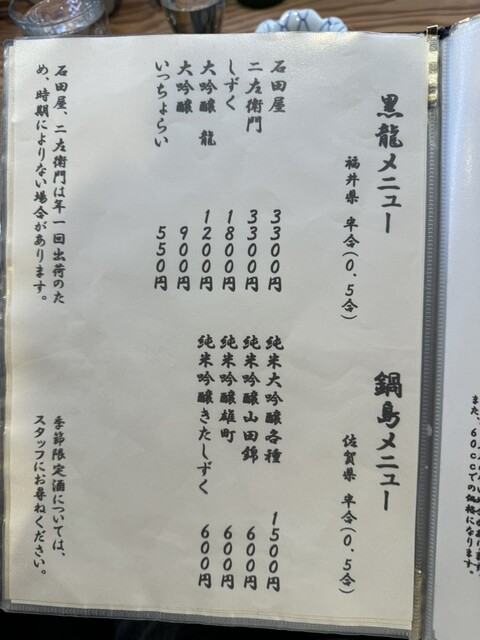 黒龍メニュー
福井県 半合(0.5合)
石田屋 3300円
二左衛門 3300円
しずく 1800円
大吟醸 龍 1200円
大吟醸 900円
いっちょらい 550円
石田屋、二左衛門は年一回出荷のた
め、時期によりない場合があります。
鍋島メニュー
佐賀県 半合(0.5合)
純米大吟醸各種 1500円
純米吟醸山田錦 600円
純米吟醸雄町 600円
純米吟醸きたしずく 600円
季節限定酒については、
スタッフにお尋ねください。